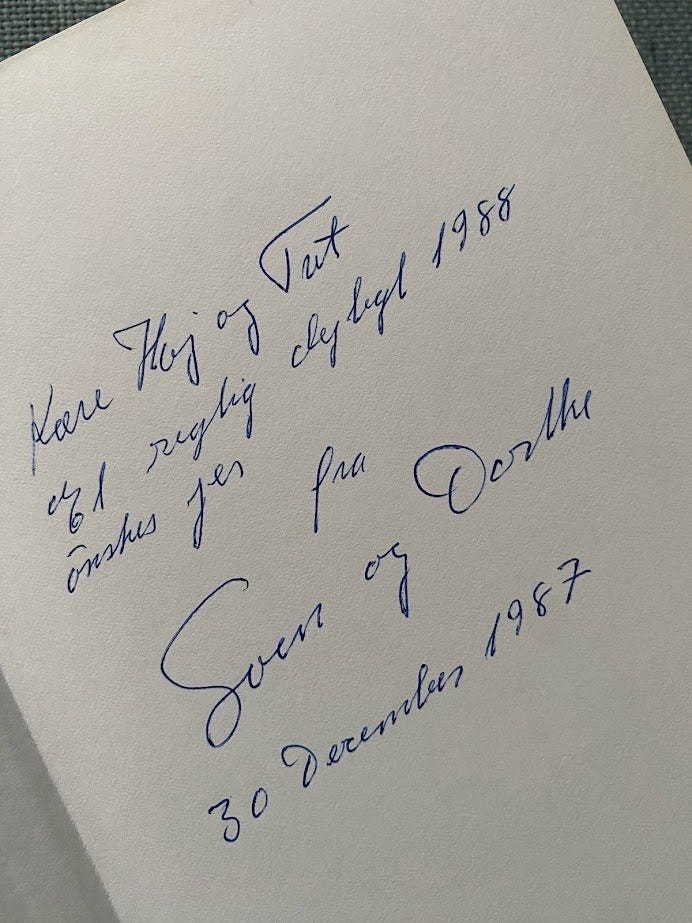 Kære Høj og Tut
Et rigtig dejligt 1988
ønskes jer fra
Svend og Dorthe
30 December 1987